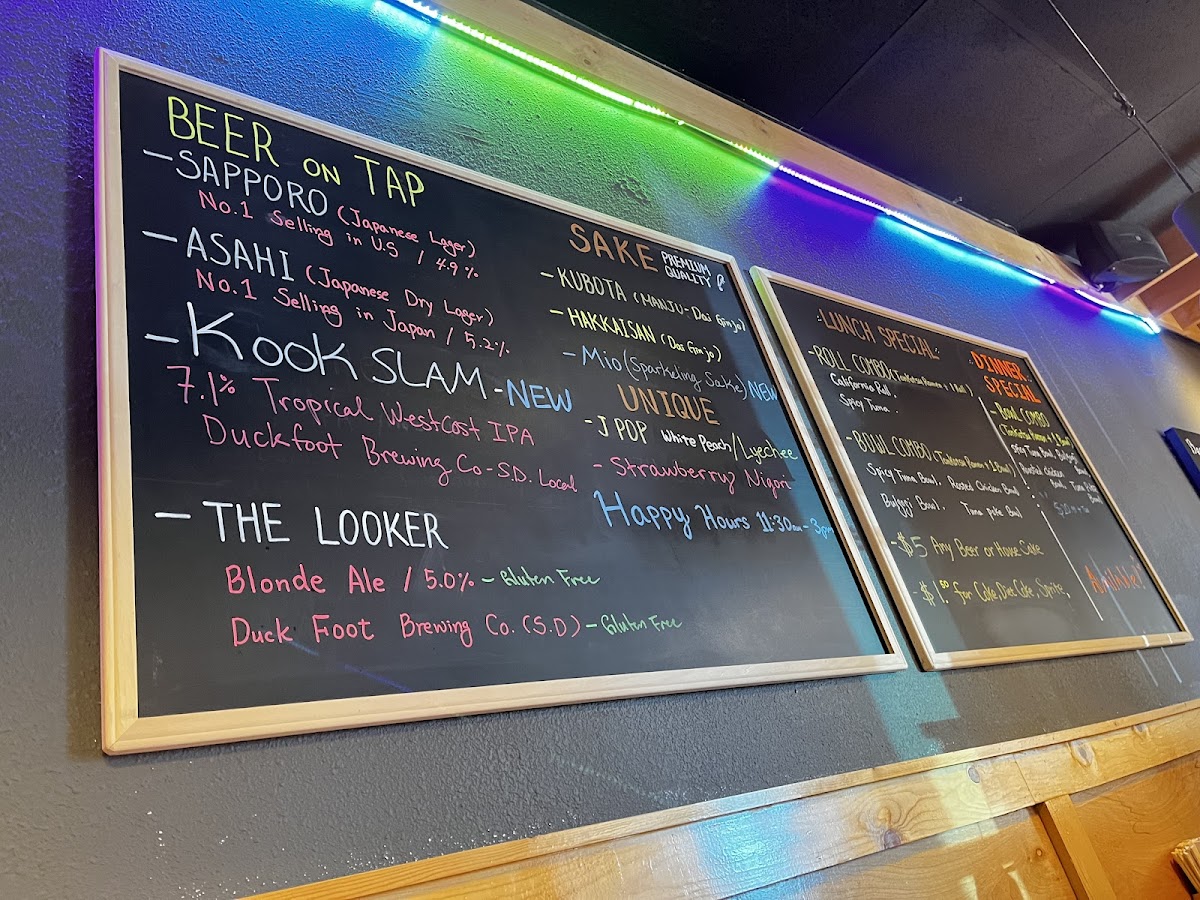 BEER ON TAP
- SAPPORO (Japanese Lager)
No.1 Selling in U.S / 4.9%
- ASAHI (Japanese Dry Lager)
No.1 Selling in Japan / 5.2%
- Kook SLAM - NEW
7.1% Tropical WestCost IPA
Duckfoot Brewing Co - S.D. Local
- THE LOOKER
Blonde Ale / 5.0% - Gluten Free
Duck Foot Brewing Co. (S.D) - Gluten Free
SAKE PREMIUM QUALITY
- KUBOTA (MANJU - Dai Ginjo)
- HAKKAISAN (Dai Ginjo)
- Mio (Sparkeling Sake) NEW
UNIQUE
- J POP White Peach / Lyechee
- Strawberry Nigori
Happy Hours 11:30am - 3pm
LUNCH SPECIAL
- ROLL COMBO (Tonkotsu Ramen + 1 Roll)
California Roll.
Spicy Tuna.
- BOWL COMBO (Tonkotsu Ramen + 1 Bowl)
Spicy Tuna Bowl, Roasted Chicken Bowl
Bulgogi Bowl. Tuna poke Bowl
- $5 Any Beer or House Sake
- $1.50 for Coke, Diet Coke, Sprite,
DINNER
SPECIAL
- BOWL COMBO
(Tonkotsu Ramen + 1 Bowl)
Spicy Tuna Bowl, Bulgogi
Roasted Chicken Bowl
Bowl, Tuna Poke
Bowl
Available!